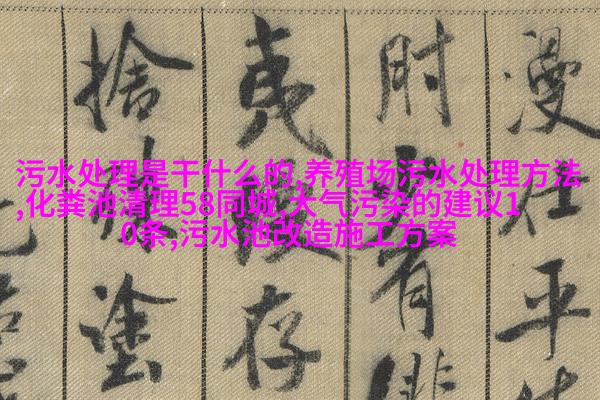 污水处理是干什么的,养殖场污水处理方法
,化粪池清理58同城,大气污染的建议1
0条,污水池改造施工方案
漫
任
平
时
有
夷
存
捨
塗